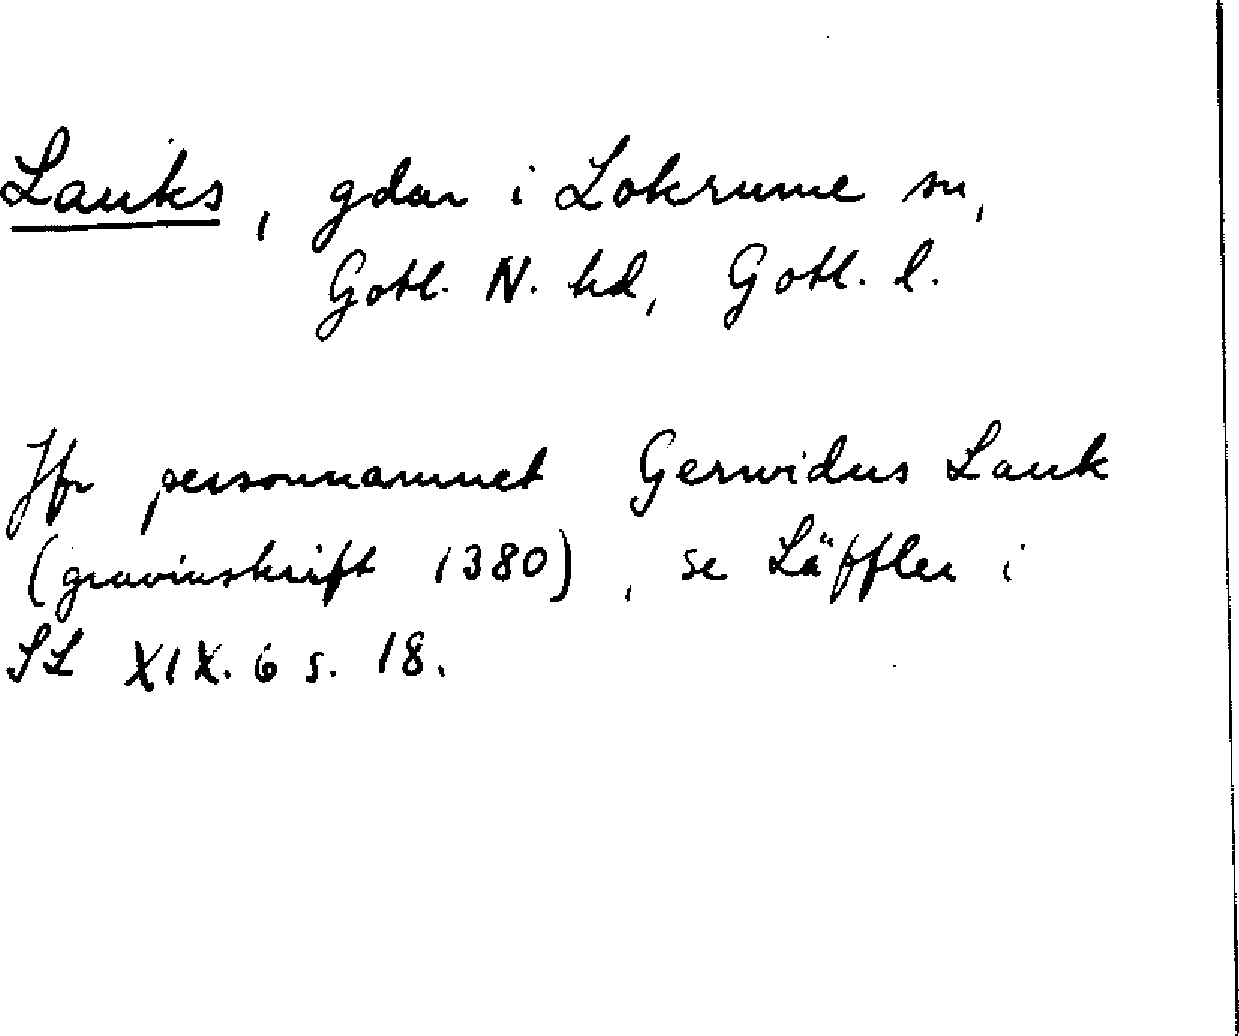 Lauks, gdar i Lokrume sn,
Gotl. N. hd, Gotl. l.
Jfr personnamnet Gerwidus Lauk
(gravinskrift 1380), se Läffler i
SL XIX. 6 s. 18.